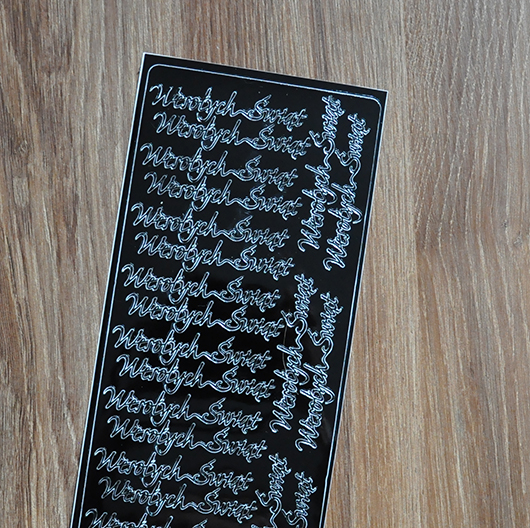 Wesołych Świąt
Wesołych Świąt
Wesołych Świąt
Wesołych Świąt
Wesołych Świąt
Wesołych Świąt
Wesołych Świąt
Wesołych Świąt
Wesołych Świąt
Wesołych Świąt
Wesołych Świąt
Wesołych Świąt
Wesołych Świąt
Wesołych Świąt
Wesołych Świąt
Wesołych Świąt
Wesołych Świąt
Wesołych Świąt
Wesołych Świąt
Świąt
Świąt